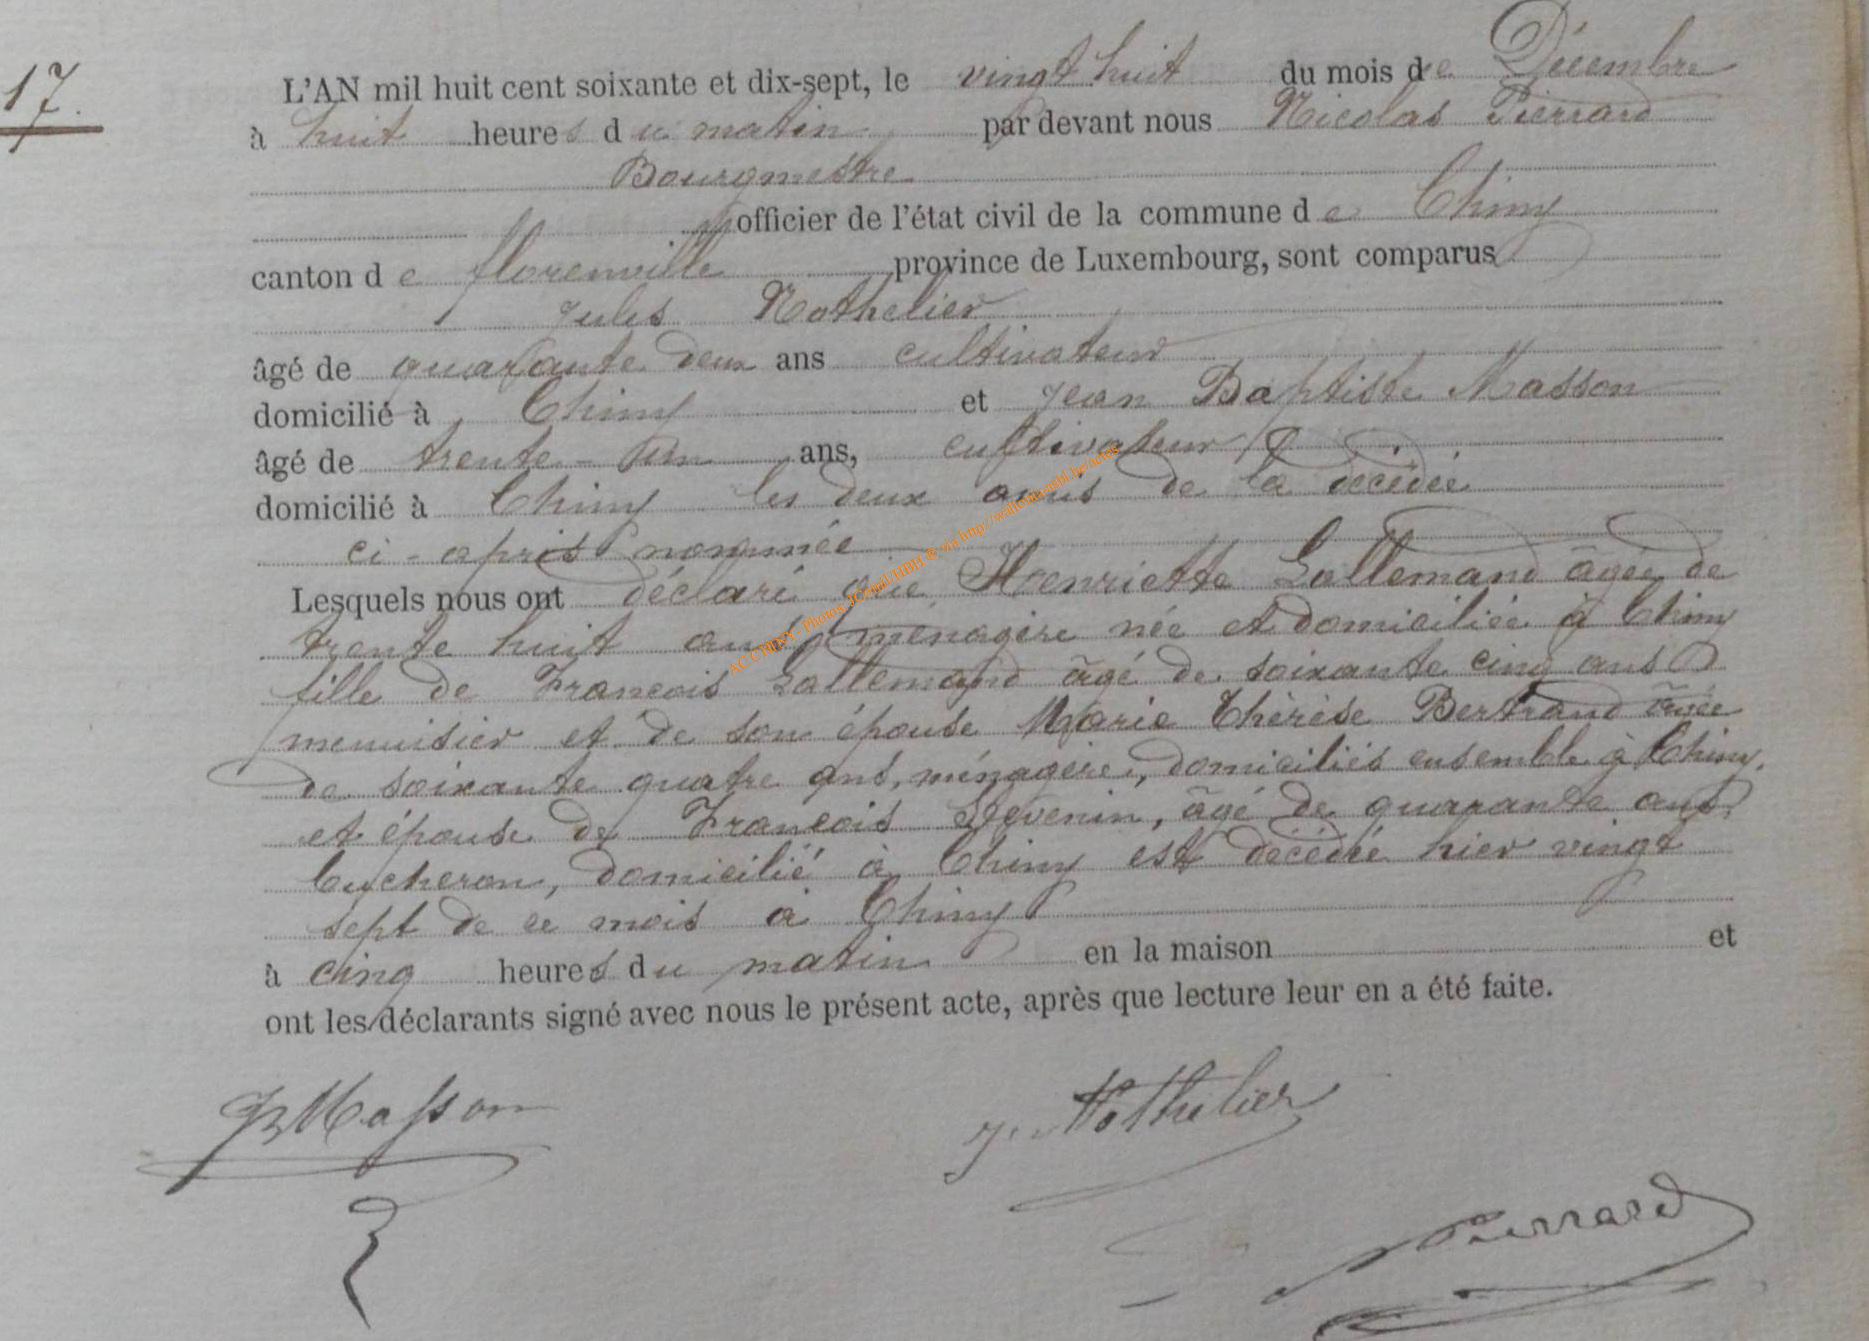 17.
L'AN mil huit cent soixante et dix-sept, le vingt huit du mois de Décembre
à huit heures du matin par devant nous Nicolas Pierrard
Bourgmestre
officier de l'état civil de la commune de Chiny
canton de florenville province de Luxembourg, sont comparus
Jules Nothelier
âgé de quarante deux ans cultivateur
domicilié à Chiny et Jean Baptiste Masson
âgé de trente-un ans, cultivateur
domicilié à Chiny les deux amis de la décédée
ci-après nommée
Lesquels nous ont déclaré que Henriette Lallemand âgée de
trente huit ans, ménagère née et domiciliée à Chiny
fille de Francois Lallemand âgé de soixante cinq ans
menuisier et de son épouse Marie Thérèse Bertrand âgée
de soixante quatre ans, ménagère, domiciliés ensemble à Chiny,
et épouse de Francois Stevenin, âgé de quarante ans,
bucheron, domicilié à Chiny est décédée hier vingt
sept de ce mois à Chiny
à cinq heures du matin en la maison et
ont les déclarants signé avec nous le présent acte, après que lecture leur en a été faite.
JBMasson J. Nothelier
Pierrard